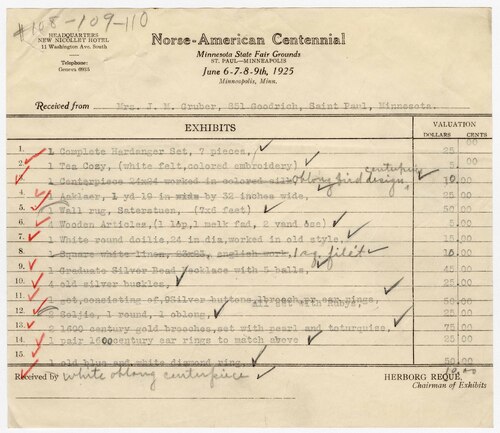 #108-109-110
HEADQUARTERS
NEW NICOLLET HOTEL
15 Washington Ave. South
Telephone:
Geneva 6935
Norse-American Centennial
Minnesota State Fair Grounds
ST. PAUL—MINNEAPOLIS
June 6-7-8-9th, 1925
Minneapolis, Minn.
Received from Mrs. J. M. Gruber, 851 Goodrich, Saint Paul, Minnesota.
EXHIBITS VALUATION
DOLLARS CENTS
1. 1 Complete Hardanger Set, 7 pieces, 25 00
2. 1 Tea Cozy, (white felt,colored embroidery) 5 00
3. 1 Centerpiece 24x24 worked in colored silk oblong bird design, centerpiece 10 00
4. 1 Aaklaer, 1 yd 19 in wide by 32 inches wide, 25 00
5. 1 Wall rug, Saterstuen, (7x6 feet) 50 00
6. 4 Wooden Articles,(1 lop,1 melk fad, 2 vand ose)
7. 1 White round doilie,24 in dia,worked in old style,
8. 1 Square white linen, english work, 1 filét 10 00
9. 1 Graduate Silver Bead Necklace with 5 balls,
10. 4 old silver buckles,
11. 1 set,consisting of,9Silver buttons,1brooch,or ear rings,
all set with Rubys,
12. 2 Soljie, 1 round, 1 oblong,
13. 2 1600 century gold broaches,set with pearl and taturquise,
14. 1 pair 1600century ear rings to match above
15.
1 old blue and white diamond ring, 50 00
Received by White oblong centerpiece 10.00
HERBORG REQUE,
Chairman of Exhibits